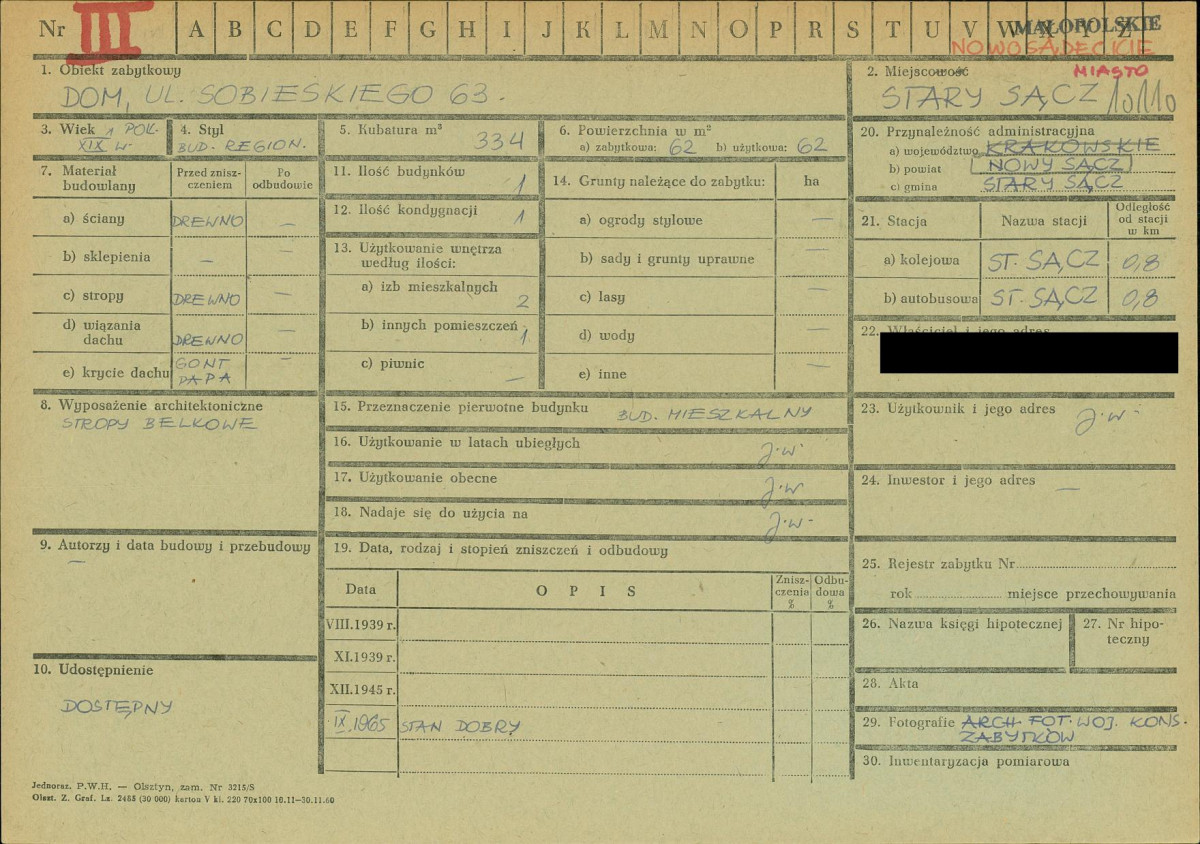 Nr III A B C D E F G H I J K L M N O P R S T U V W X Y Z
MAŁOPOLSKIE
NOWOSĄDECKIE
MIASTO
1. Obiekt zabytkowy
DOM, UL. SOBIESKIEGO 63.
2. Miejscowość
STARY SĄCZ 10110
3. Wiek 1 POŁ.
XIX W.
4. Styl
BUD. REGION.
5. Kubatura m³
334
6. Powierzchnia w m²
a) zabytkowa: 62 b) użytkowa: 62
20. Przynależność administracyjna
a) województwo KRAKOWSKIE
b) powiat NOWY SĄCZ
c) gmina STARY SĄCZ
7. Materiał budowlany
Przed zniszczeniem
Po odbudowie
a) ściany DREWNO —
b) sklepienia — —
c) stropy DREWNO —
d) wiązania dachu DREWNO —
e) krycie dachu GONT PAPA —
11. Ilość budynków 1
12. Ilość kondygnacji 1
13. Użytkowanie wnętrza według ilości:
a) izb mieszkalnych 2
b) innych pomieszczeń 1
c) piwnic —
14. Grunty należące do zabytku: ha
a) ogrody stylowe —
b) sady i grunty uprawne —
c) lasy —
d) wody —
e) inne —
21. Stacja
Nazwa stacji
Odległość od stacji w km
a) kolejowa ST. SĄCZ 0,8
b) autobusowa ST. SĄCZ 0,8
22. Właściciel i jego adres
8. Wyposażenie architektoniczne
STROPY BELKOWE
15. Przeznaczenie pierwotne budynku BUD. MIESZKALNY
16. Użytkowanie w latach ubiegłych j.w.
17. Użytkowanie obecne j.w.
18. Nadaje się do użycia na j.w.
23. Użytkownik i jego adres j.w.
24. Inwestor i jego adres —
9. Autorzy i data budowy i przebudowy
—
10. Udostępnienie
DOSTĘPNY
19. Data, rodzaj i stopień zniszczeń i odbudowy
Data OPIS Zniszczenia % Odbudowa %
VIII.1939 r.
XI.1939 r.
XII.1945 r.
IX.1965 STAN DOBRY
25. Rejestr zabytku Nr
rok miejsce przechowywania
26. Nazwa księgi hipotecznej
27. Nr hipoteczny
28. Akta
29. Fotografie ARCH. FOT. WOJ. KONS. ZABYTKÓW
30. Inwentaryzacja pomiarowa
Jednoraz. P.W.H. — Olsztyn, zam. Nr 3215/S
Olszt. Z. Graf. Lz. 2485 (30 000) karton V kl. 220 70x100 16.11—30.11.60